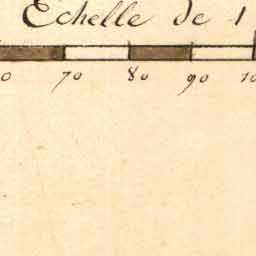 Echelle de 1
0 70 80 90 10